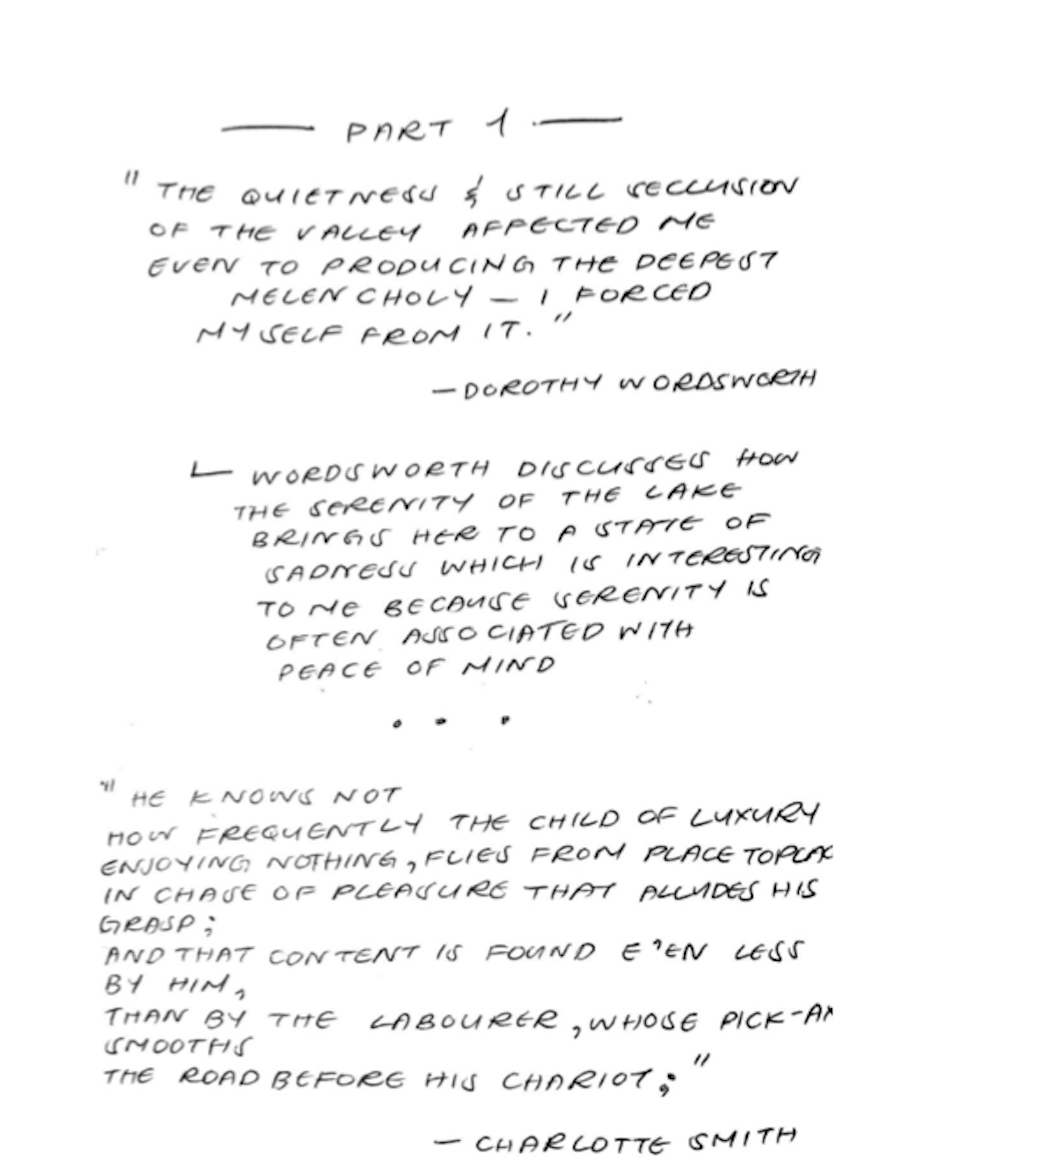 — PART 1 —
"THE QUIETNESS & STILL SECCLUSION
OF THE VALLEY AFFECTED ME
EVEN TO PRODUCING THE DEEPEST
MELENCHOLY — I FORCED
MYSELF FROM IT."
— DOROTHY WORDSWORTH
WORDSWORTH DISCUSSES HOW
THE SERENITY OF THE LAKE
BRINGS HER TO A STATE OF
SADNESS WHICH IS INTERESTING
TO ME BECAUSE SERENITY IS
OFTEN ASSOCIATED WITH
PEACE OF MIND
. . .
"HE KNOWS NOT
HOW FREQUENTLY THE CHILD OF LUXURY
ENJOYING NOTHING, FLIES FROM PLACE TO
IN CHASE OF PLEASURE THAT ALLUDES HIS
GRASP;
AND THAT CONTENT IS FOUND E'EN LESS
BY HIM,
THAN BY THE LABOURER, WHOSE
SMOOTHS
THE ROAD BEFORE HIS CHARIOT;"
— CHARLOTTE SMITH